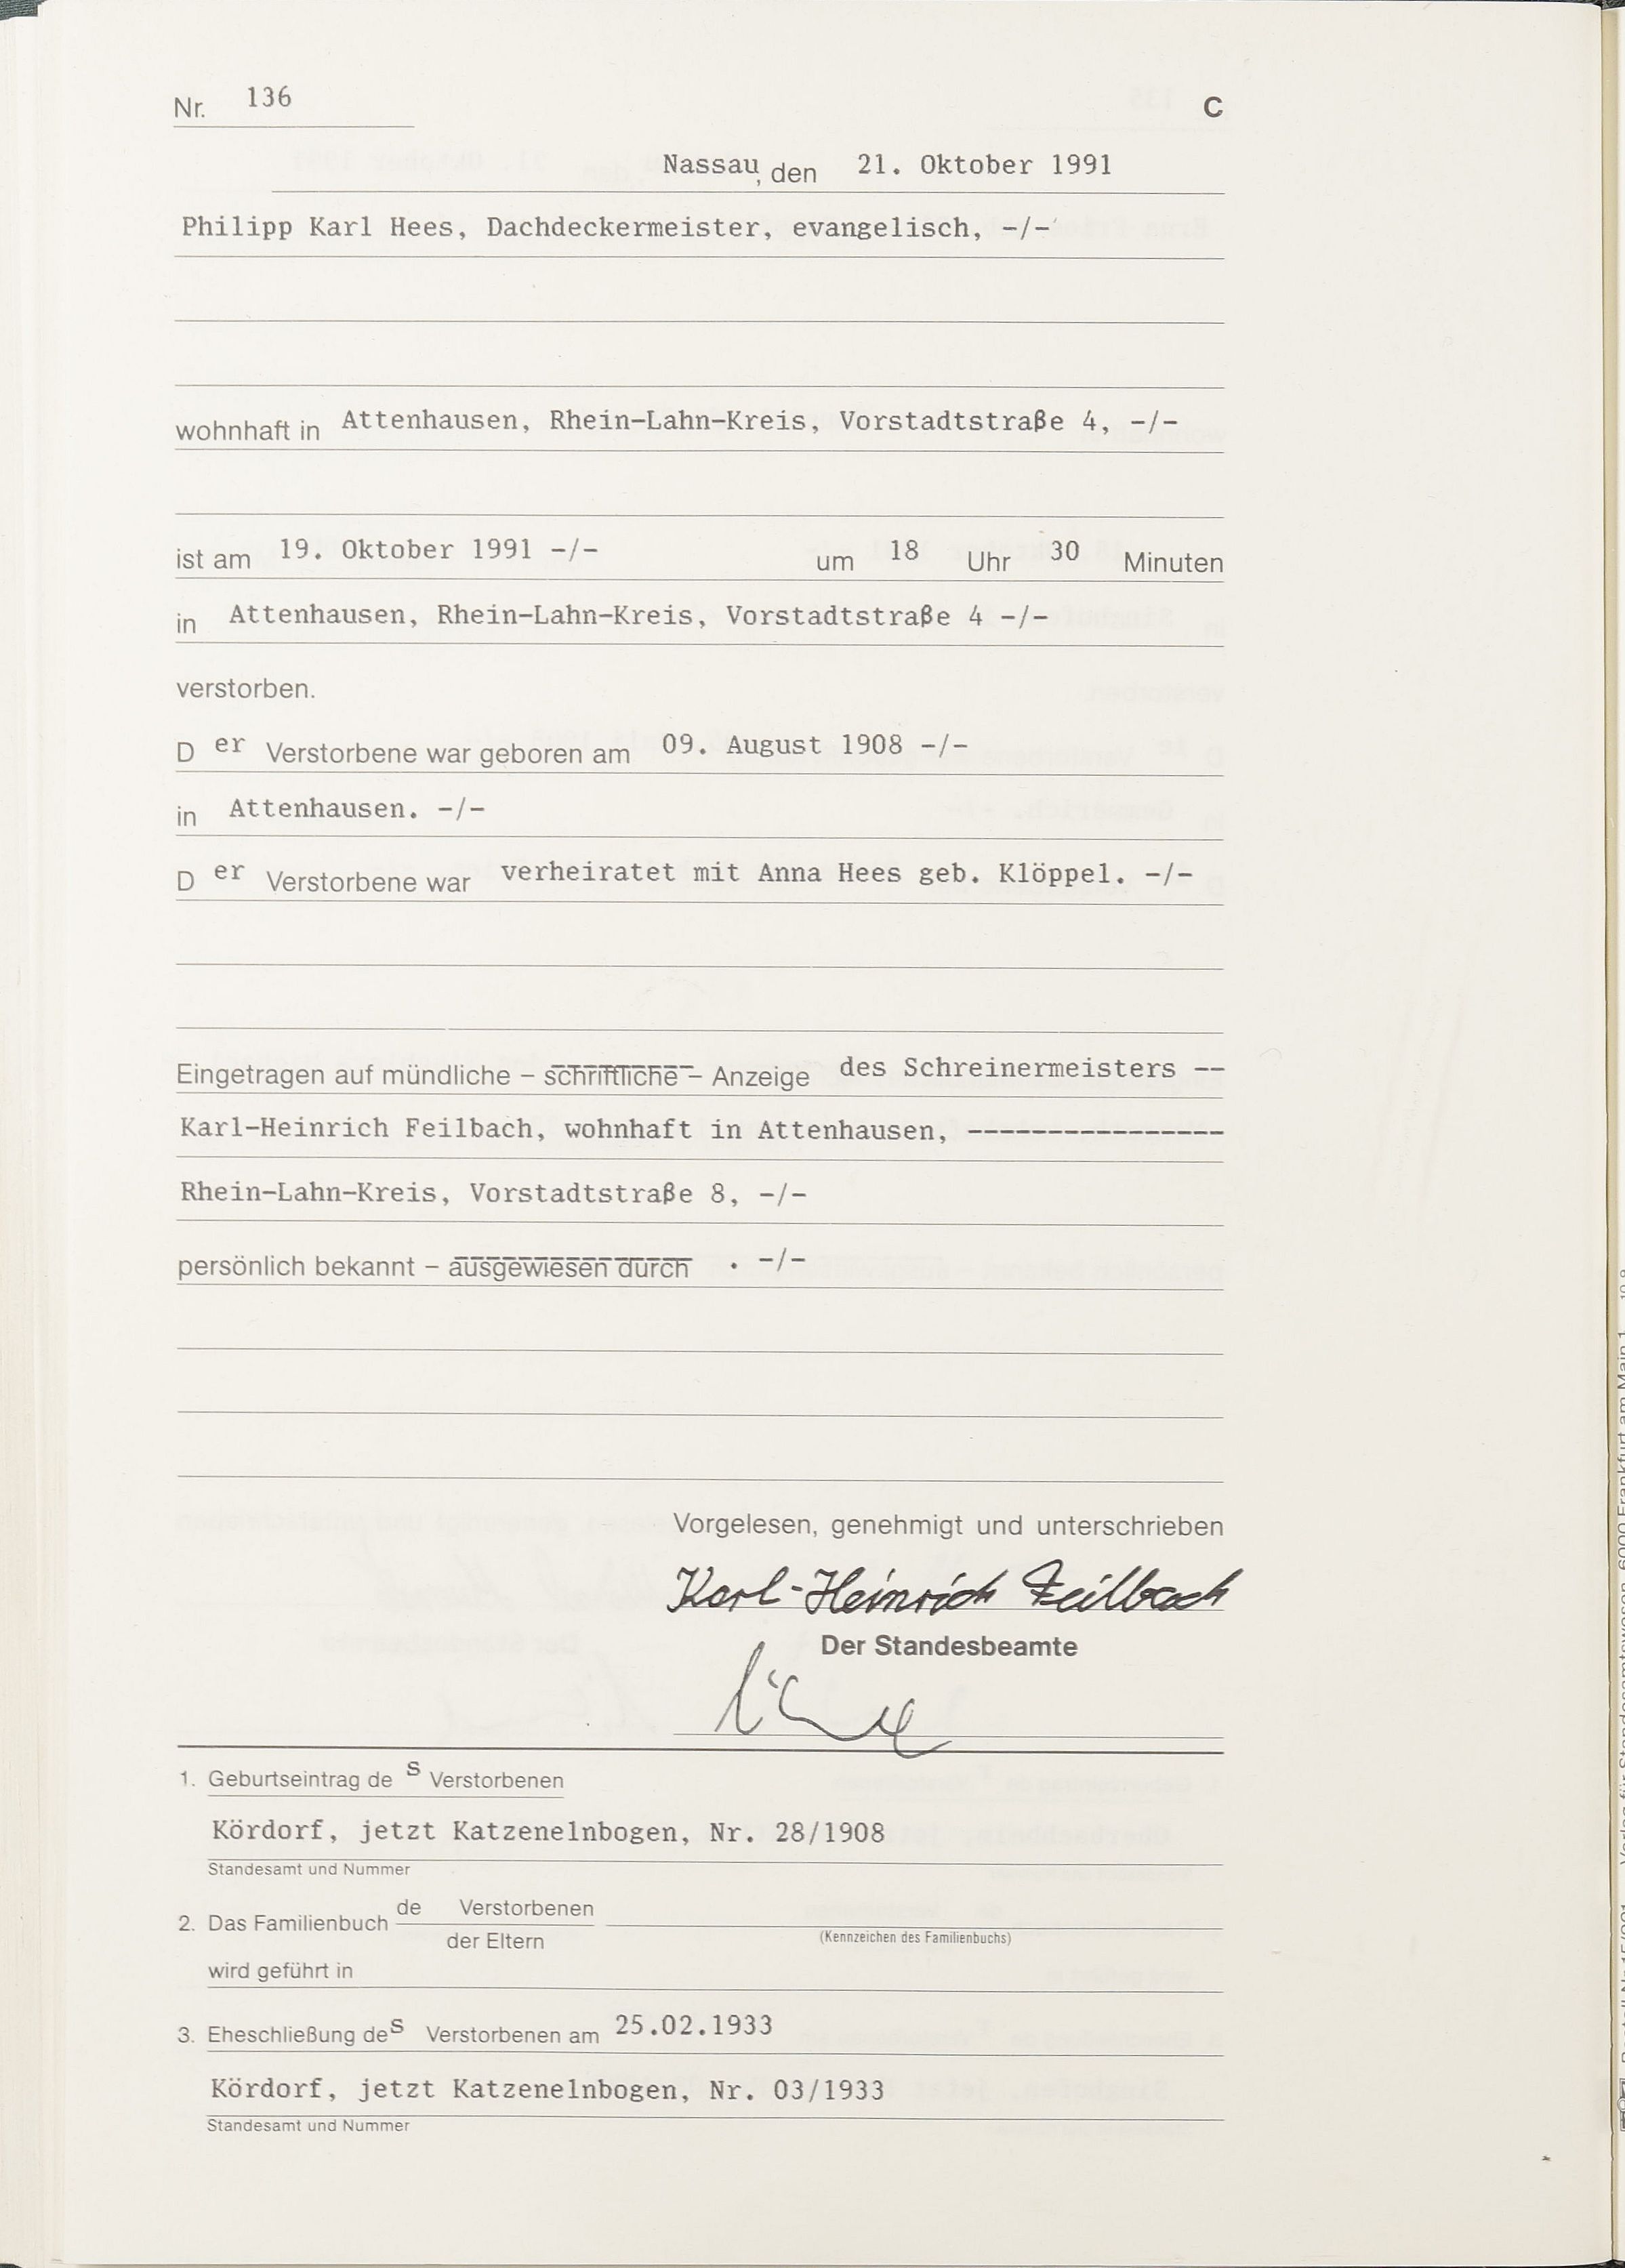 Nr. 136 C
Nassau, den 21. Oktober 1991
Philipp Karl Hees, Dachdeckermeister, evangelisch, -/-
wohnhaft in Attenhausen, Rhein-Lahn-Kreis, Vorstadtstraße 4, -/-
ist am 19. Oktober 1991 -/- um 18 Uhr 30 Minuten
in Attenhausen, Rhein-Lahn-Kreis, Vorstadtstraße 4 -/-
verstorben.
D er Verstorbene war geboren am 09. August 1908 -/-
in Attenhausen. -/-
D er Verstorbene war verheiratet mit Anna Hees geb. Klöppel. -/-
Eingetragen auf mündliche – schriftliche – Anzeige des Schreinermeisters --
Karl-Heinrich Feilbach, wohnhaft in Attenhausen, ----------------
Rhein-Lahn-Kreis, Vorstadtstraße 8, -/-
persönlich bekannt – ausgewiesen durch . -/-
Vorgelesen, genehmigt und unterschrieben
Karl-Heinrich Feilbach
Der Standesbeamte
1. Geburtseintrag de s Verstorbenen
Kördorf, jetzt Katzenelnbogen, Nr. 28/1908
Standesamt und Nummer
de Verstorbenen
2. Das Familienbuch
der Eltern (Kennzeichen des Familienbuchs)
wird geführt in
3. Eheschließung des Verstorbenen am 25.02.1933
Kördorf, jetzt Katzenelnbogen, Nr. 03/1933
Standesamt und Nummer